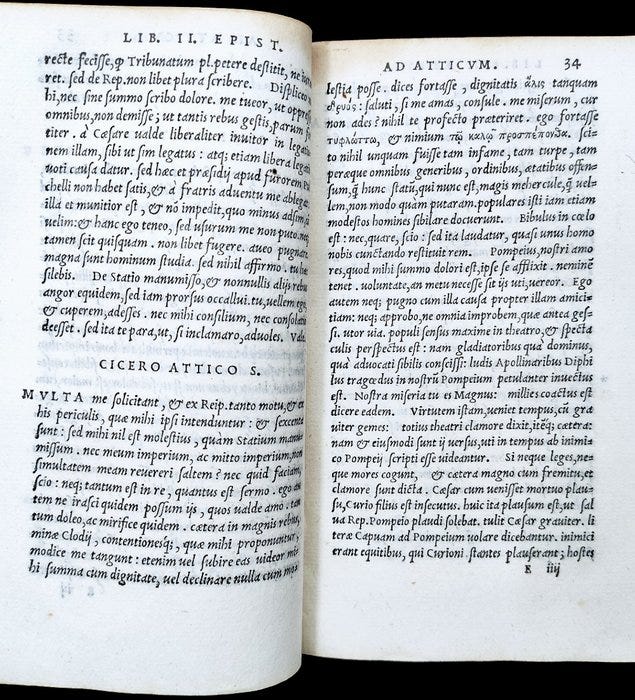 LIB. II. EPIST.
recte fecisse, ꝙ Tribunatum pl. petere destitit, ne
ret. sed de Rep. non libet plura scribere. Displiceo
hi, nec sine summo scribo dolore. me tueor, ut oppressis
omnibus, non demisse; ut tantis rebus gestis, parum
titer. à Cæsare ualde liberaliter inuitor in legatio
nem illam, sibi ut sim legatus: atq; etiam libera legatio
uoti causa datur. sed hæc et præsidij apud furorem
chelli non habet satis, & à fratris aduentu me ablegat
illa et munitior est, & nō impedit, quo minus adsim,
uelim: & hanc ego teneo, sed usurum me non puto. neq;
tamen scit quisquam. non libet fugere. aueo pugnare
magna sunt hominum studia. sed nihil affirmo. tu hoc
silebis. De Statio manumisso, & nonnullis alijs rebus
angor equidem, sed iam prorsus occallui. tu, uellem ego,
& cuperem, adesses. nec mihi consilium, nec consolatio
deesset. sed ita te para, ut, si inclamaro, aduoles. Vale.
CICERO ATTICO S.
MVLTA me solicitant, & ex Reip. tanto motu, & ex
his periculis, quæ mihi ipsi intenduntur: & sexcenta
sunt: sed mihi nil est molestius, quàm Statium manu
missum. nec meum imperium, ac mitto imperium, non
simultatem meam reuereri saltem? nec quid faciam,
scio: neq; tantum est in re, quantus est sermo. ego au
tem ne irasci quidem possum ijs, quos ualde amo. tan
tum doleo, ac mirifice quidem. cætera in magnis rebus,
minæ Clodij, contentionesq;, quæ mihi proponuntur,
modice me tangunt: etenim uel subire eas uideor mi
hi summa cum dignitate, uel declinare nulla cum mo
AD ATTICVM. 34
lestia posse. dices fortasse, dignitatis ἅλις tanquam
δρυός: saluti, si me amas, consule. me miserum, cur
non ades? nihil te profecto præteriret. ego fortasse
τυφλώττω, & nimium τῷ καλῷ προσπέπονθα. sci=
to nihil unquam fuisse tam infame, tam turpe, tam
peræque omnibus generibus, ordinibus, ætatibus offen=
sum, ꝗ̃ hunc statū, qui nunc est, magis mehercule, ꝗ̃ uel=
lem, non modo quàm putaram. populares isti iam etiam
modestos homines sibilare docuerunt. Bibulus in cœlo
est: nec, quare, scio: sed ita laudatur, quasi unus homo
nobis cunctando restituit rem. Pompeius, nostri amo
res, quod mihi summo dolori est, ipse se afflixit. neminē
tenet. uoluntate, an metu necesse sit ijs uti, uereor. Ego
autem neq; pugno cum illa causa propter illam amici=
tiam: neq; approbo, ne omnia improbem, quæ antea ges=
si. utor uia. populi sensus maxime in theatro, & specta
culis perspectus est: nam gladiatoribus quà dominus,
quà aduocati sibilis conscissi: ludis Apollinaribus Diphi
lus tragœdus in nostrū Pompeium petulanter inuectus
est. Nostra miseria tu es Magnus: millies coactus est
dicere eadem. Virtutem istam, ueniet tempus, cū gra
uiter gemes: totius theatri clamore dixit, itēq; cætera:
nam & eiusmodi sunt ij uersus, uti in tempus ab inimi=
co Pompeij scripti esse uideantur. Si neque leges, ne=
que mores cogunt, & cætera magno cum fremitu, et
clamore sunt dicta. Cæsar cum uenisset mortuo plau=
su, Curio filius est insecutus. huic ita plausum est, ut sal
ua Rep. Pompeio plaudi solebat. tulit Cæsar grauiter. li
teræ Capuam ad Pompeium uolare dicebantur. inimici
erant equitibus, qui Curioni stantes plauserant; hostes
E iiij